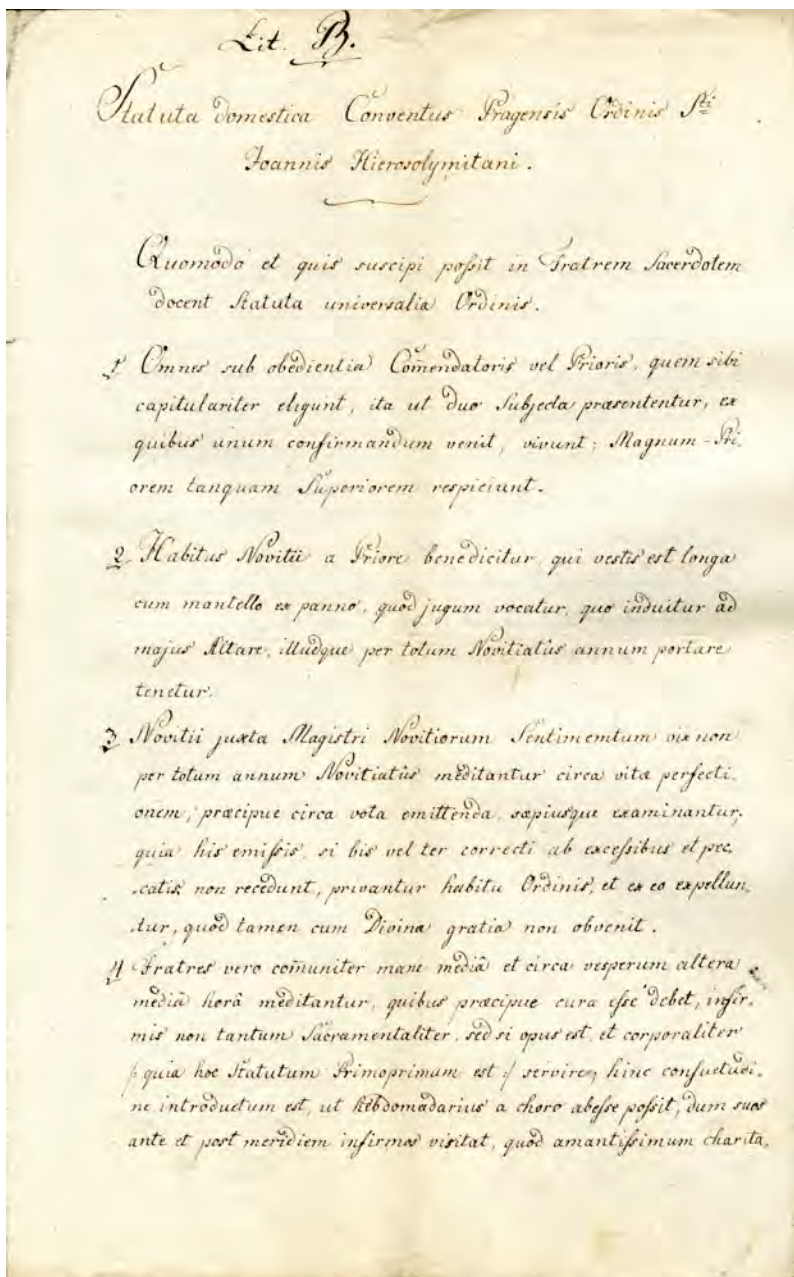 Lit. B.
Statuta domestica Conventus Pragensis Ordinis Sti
Joannis Hierosolymitani.
Quomodo et quis suscipi possit in Fratrem Sacerdotem
docent Statuta universalia Ordinis.
1 Omnes sub obedientia Com̄endatoris vel Prioris, quem sibi
capitulariter eligunt, ita ut duo Subjecta præsententur, ex
quibus unum confirmandum venit, vivunt; Magnum-Pri-
orem tanquam Superiorem respiciunt.
2 Habitus Novitii a Priore benedicitur, qui vestis est longa
cum mantello ex panno, quod jugum vocatur, quo induitur ad
majus Altare, illudque per totum Novitiatûs annum portare
tenetur.
3 Novitii juxta Magistri Novitiorum Sentimemtum vix non
per totum annum Novitiatûs meditantur circa vitæ perfecti-
onem, præcipue circa vota emittenda, sæpiusque examinantur,
quia his emissis, si bis vel ter correcti ab excessibus et pec-
catis non recedunt, privantur habitu Ordinis, et ex eo expellun-
tur, quod tamen cum Divina gratia non obvenit.
4 Fratres vero com̄uniter mane mediâ et circa vesperum altera
mediâ horâ meditantur, quibus præcipue cura esse debet, infir-
mis non tantum Sacramentaliter, sed si opus est, et corporaliter
/: quia hoc Statutum Primoprimum est :/ servire; hinc consuetudi-
ne introductum est, ut hebdomadarius a choro abesse possit, dum suos
ante et post meridiem infirmos visitat, quod amantissimum charita-